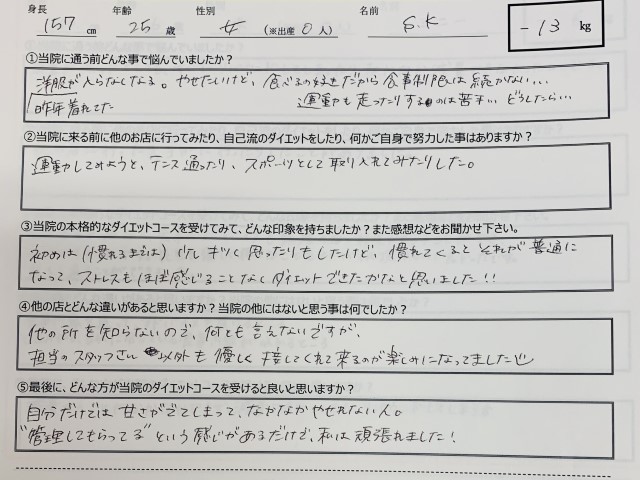 身長 157 cm 年齢 25 歳 性別 女 (※出産 0 人) 名前 S.K
-13 kg
①当院に通う前どんな事で悩んでいましたか？
洋服が入らなくなる。やせたいけど、食べるの好きだから食事制限は続かない...
昨年着れてた 運動も走ったりするのは苦手... どうしたら...
②当院に来る前に他のお店に行ってみたり、自己流のダイエットをしたり、何かご自身で努力した事はありますか？
運動してみようと、テニス通ったり、スポーツとして取り入れてみたりした。
③当院の本格的なダイエットコースを受けてみて、どんな印象を持ちましたか？また感想などをお聞かせ下さい。
初めは(慣れるまでは)少しキツく思ったりもしたけど、慣れてくるとそれが普通に
なって、ストレスもほぼ感じることなくダイエットできたかなと思いました!!
④他の店とどんな違いがあると思いますか？当院の他にはないと思う事は何でしたか？
他の所を知らないので、何とも言えないですが、
担当のスタッフさん以外も優しく接してくれて来るのが楽しみになってました
⑤最後に、どんな方が当院のダイエットコースを受けると良いと思いますか？
自分だけでは甘さがでてしまって、なかなかやせれない人。
"管理してもらってる"という感じがあるだけで、私は頑張れました!